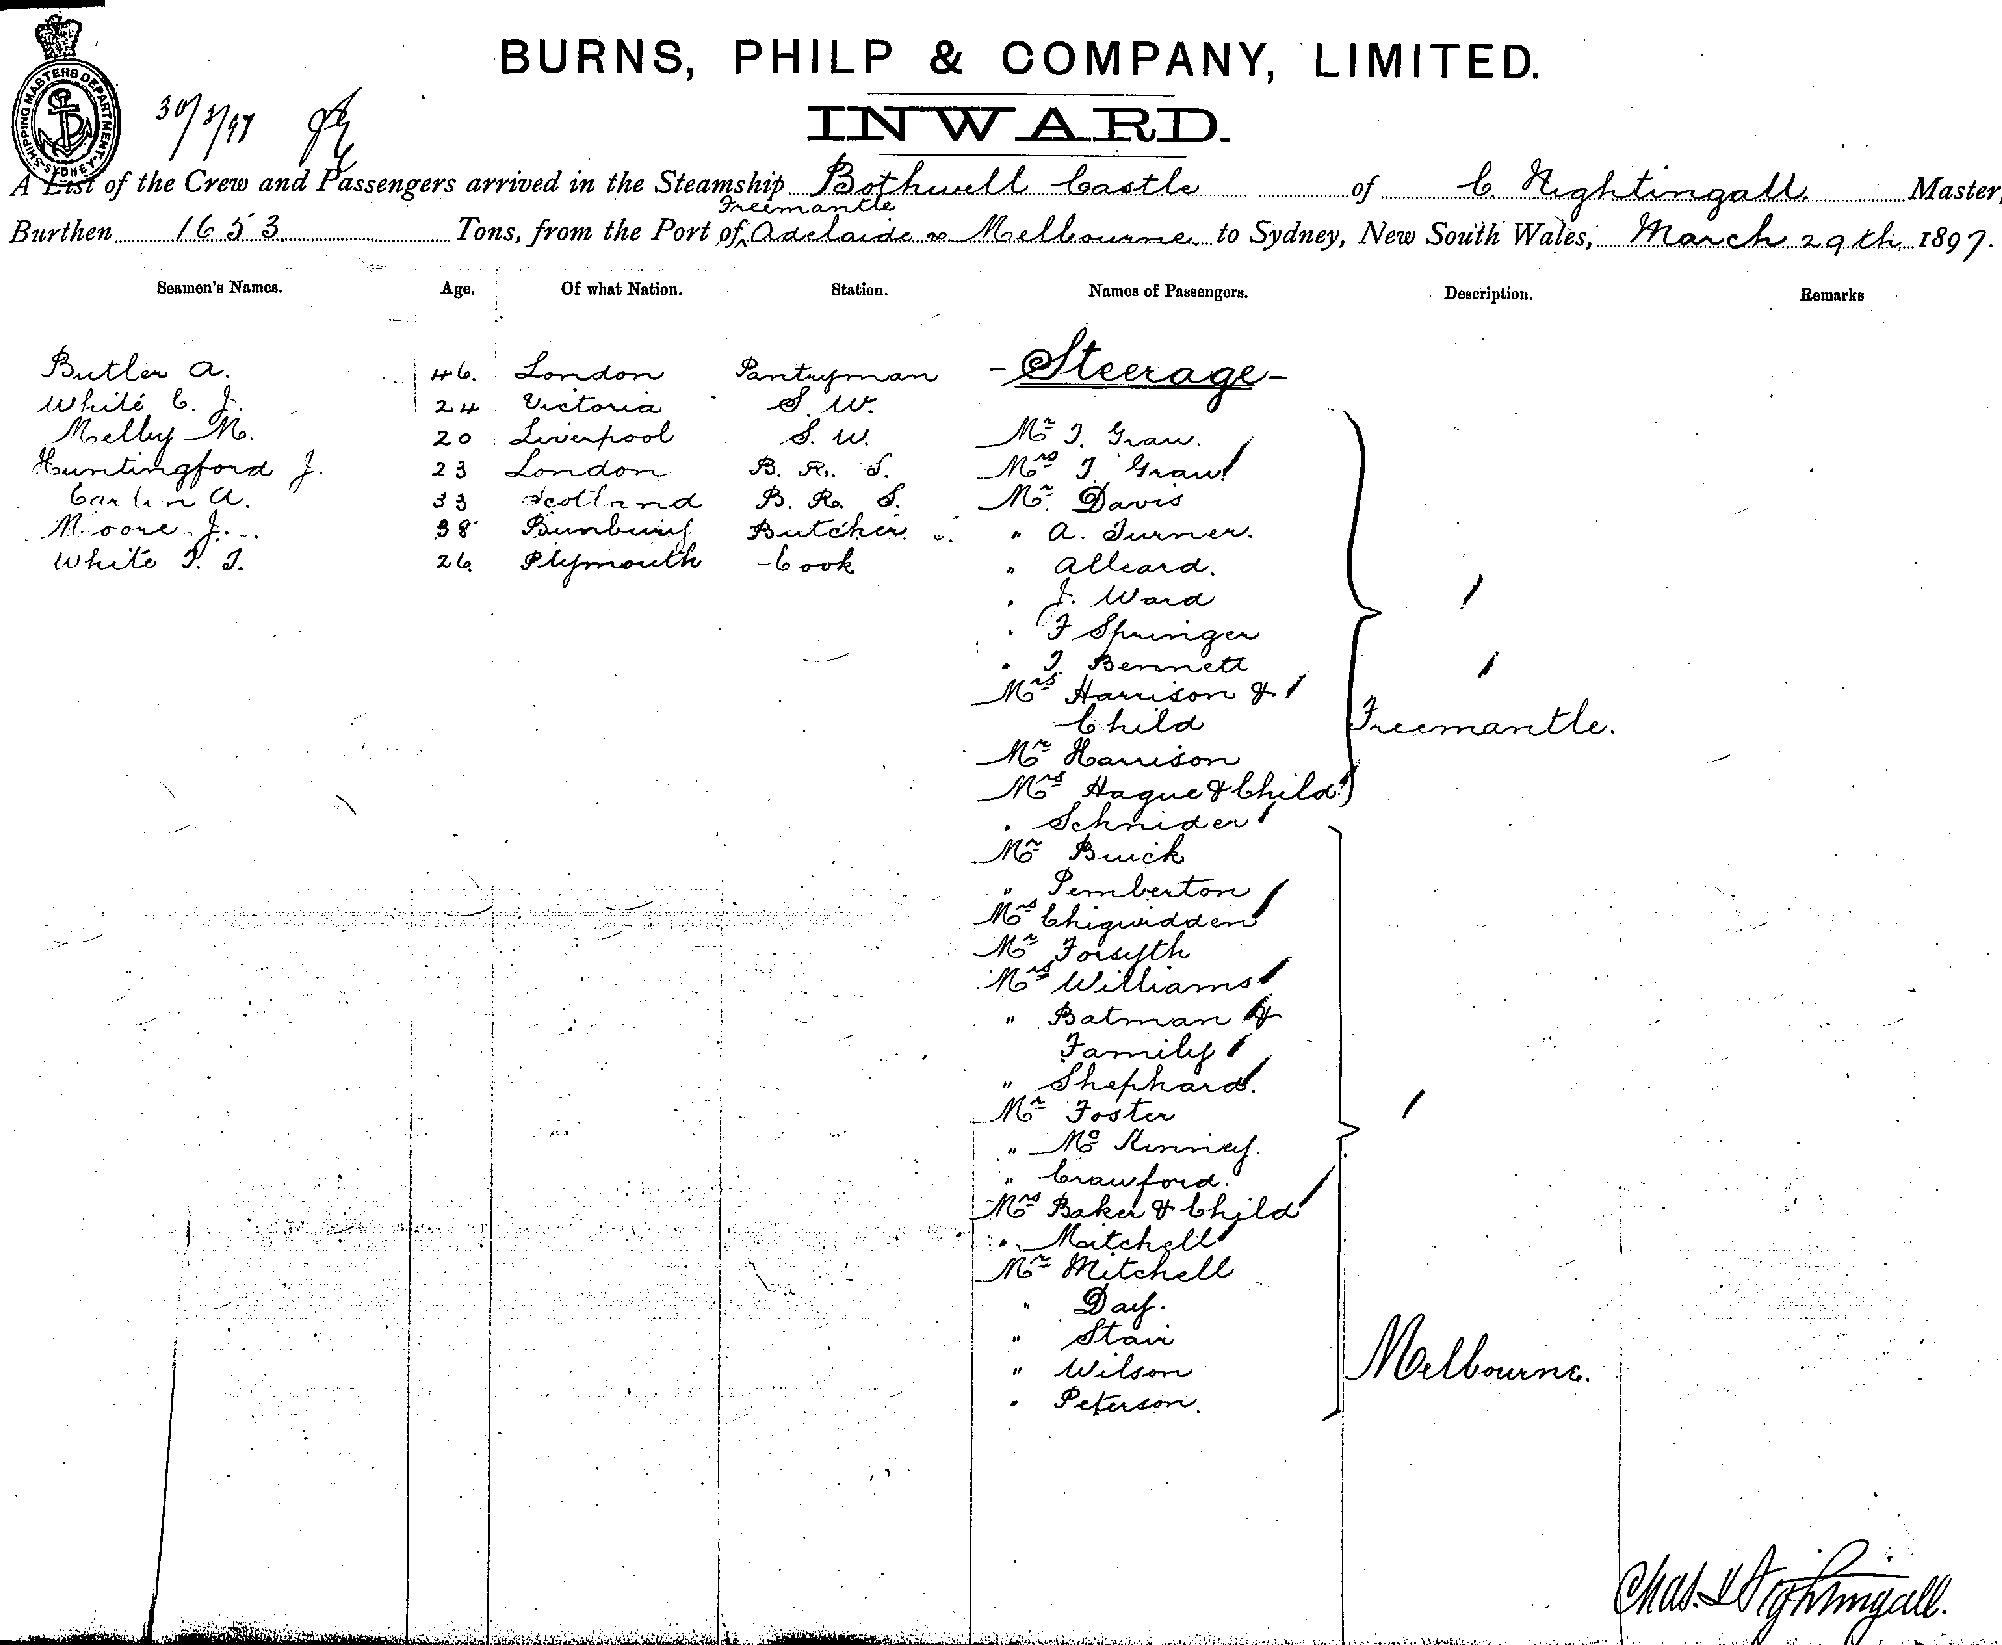 BURNS, PHILP & COMPANY, LIMITED.
INWARD.
SHIPPING MASTERS DEPARTMENT SYDNEY
30/3/97
A List of the Crew and Passengers arrived in the Steamship Bothwell Castle of C. Nightingall. Master,
Freemantle
Burthen 1653 Tons, from the Port of Adelaide & Melbourne to Sydney, New South Wales, March 29th 1897.
Seamen's Names. Age. Of what Nation. Station. Names of Passengers. Description. Remarks
- Steerage -
Butler A. 46. London Pantryman
White C. J. 24 Victoria S. W.
Melby M. 20 Liverpool S. W. Mr J. Graw.
Huntingford J. 23 London B. R. S. Mrs J. Graw
Carlin A. 33 Scotland B. R. S. Mr. Davis
Moore J. 38 Bunbury Butcher " A. Turner.
White T. J. 26 Plymouth Cook " Alleard.
" J. Ward
" F Springer
" J. Bennett
Mrs Harrison &
Child Freemantle.
Mr Harrison
Mrs Hague & Child
" Schnider
Mr Buick
" Pemberton
Mrs Chigwidden
Mr Forsyth
Mrs Williams
" Batman &
Family
" Shephard.
Mr Foster
" Mc Kinney.
" Crawford.
Mrs Baker & Child
" Mitchell
Mr Mitchell
" Day.
" Stair
" Wilson Melbourne.
" Peterson.
Chas. Nightingall.